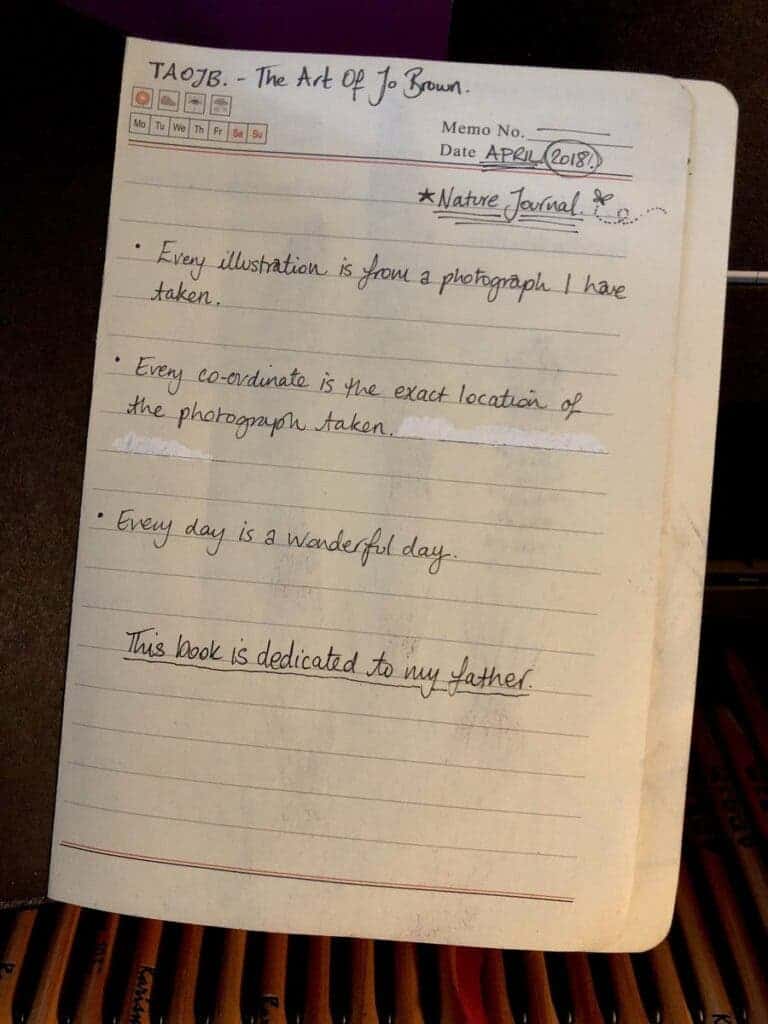 TAOJB. - The Art Of Jo Brown.
Mo Tu We Th Fr Sa Su
Memo No.
Date APRIL 2018.
*Nature Journal.
• Every illustration is from a photograph I have
taken.
• Every co-ordinate is the exact location of
the photograph taken.
• Every day is a wonderful day.
This book is dedicated to my father.